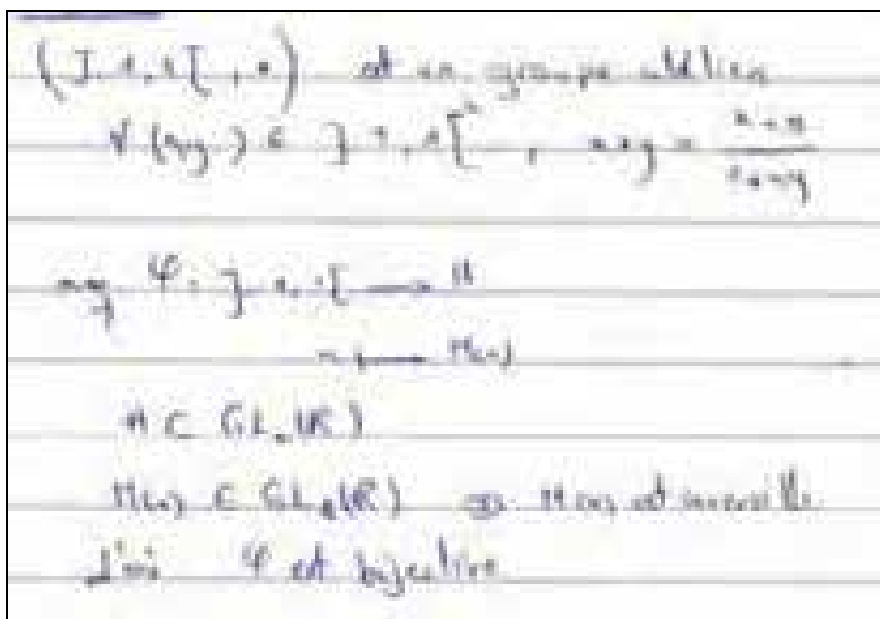 (]-1,1[ , *) est un groupe abélien
∀ (x,y) ∈ ]-1,1[² , x*y = (x+y)/(1+xy)
mq φ : ]-1,1[ ⟶ H
x ⟼ M(x)
H ⊂ GL₂(ℝ)
M(x) ∈ GL₂(ℝ) ⇒ M(x) est inversible
d'où φ est bijective